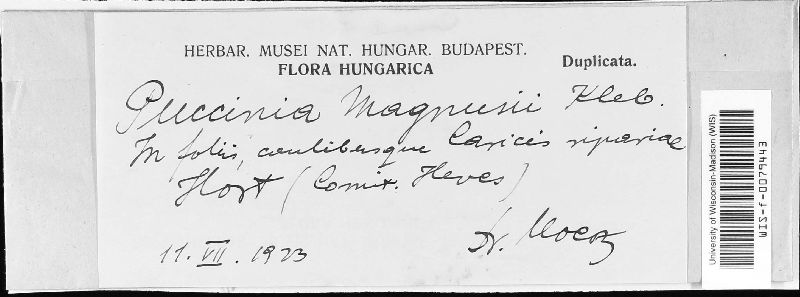 HERBAR. MUSEI NAT. HUNGAR. BUDAPEST.
FLORA HUNGARICA
Duplicata.
Puccinia Magnusii Kleb.
In foliis, caulibusque Caricis ripariae
Hort (Comit. Heves)
11. VII. 1923
Dr. Moesz
University of Wisconsin-Madison (WIS)
WIS-f-0079443